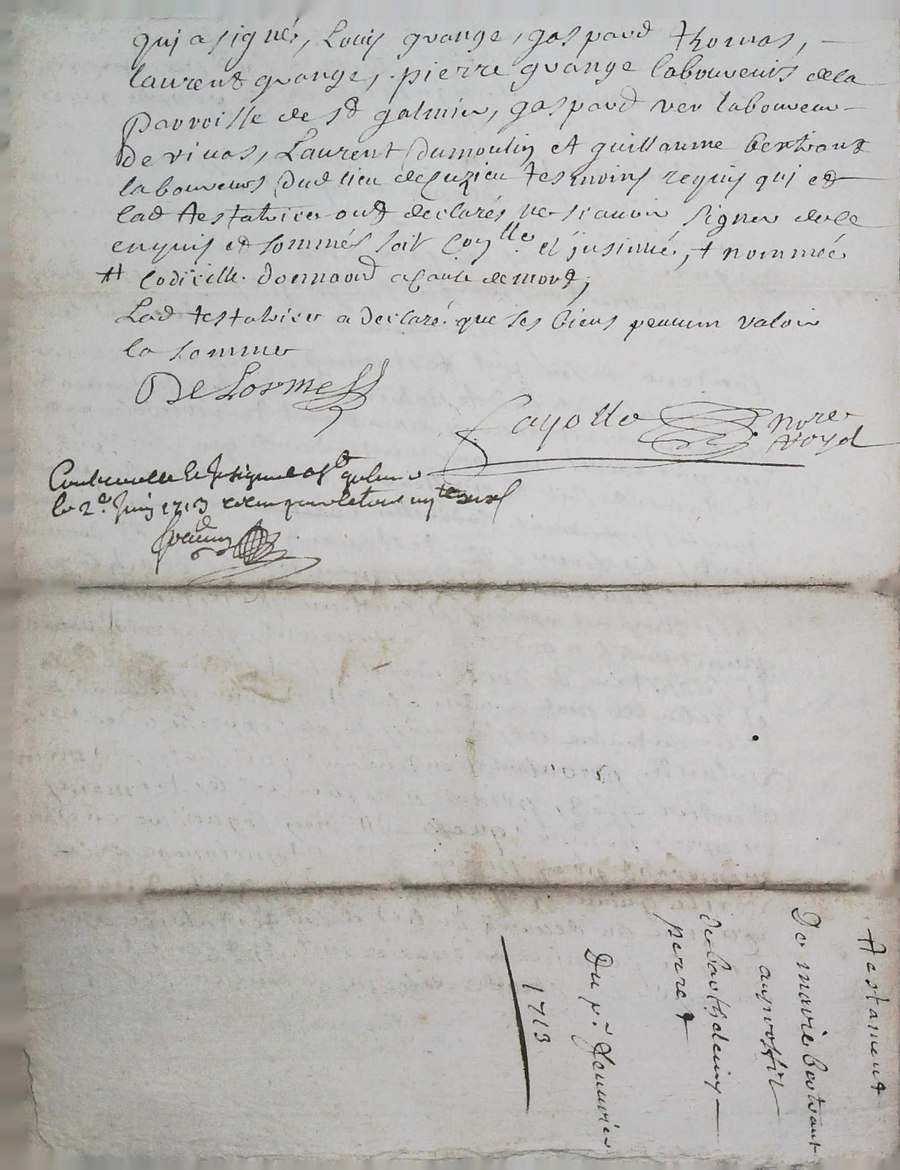 qui a signé, Louis grange, gaspard thomas,
laurent grange, pierre grange laboureurs de la
parroisse de st galmier, gaspard ver laboureur
de viuas, Laurent Dumoulin et guillaume bertrant
laboureurs dud lieu de Cuzieu tesmoins requis qui et
lad testatrice ont declarés ne scauoir signer de ce
enquis et sommés soit Coñlle et jnsinué, + nommée
# Codicille donnaõn a Cause de mort,
Lad testatrice a declaré que ses biens peuuin valoir
la somme
De Lorme
Fayolle nore
royal
Controuelle et Jnsignué a st galmier
le 2e Juin 1713
Testament
De marie bertrant
au proffit
de barthelemy
perret
Du pr Januier
1713